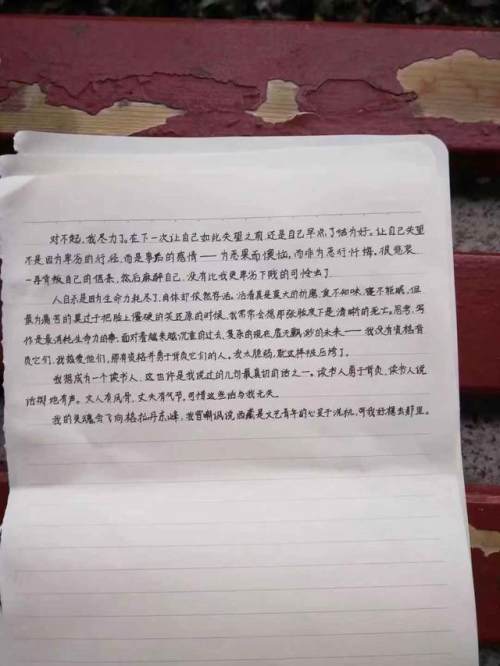 对不起,我尽力了。在下一次让自己如此失望之前,还是自己早点了结为好。让自己失望
不是因为卑劣的行径,而是事后的感情——为恶果而懊恼,而非为恶行忏悔。很悲哀
一再背叛自己的信条,然后麻醉自己,没有比我更卑劣下贱的可怜虫了
人自杀是因为生命力耗尽了,自体却依然存活。活着真是莫大的折磨,食不知味,寝不能眠,但
最为痛苦的莫过于把脸上僵硬的笑还原的时候,我常常会想那张脸皮下是清晰的死亡。思考、写
作是最消耗生命力的事,面对着越来越沉重的过去、复杂的现在、虚无飘渺的未来——我没有资格背
负它们,我抛爱他们,那有资格并勇于背负它们的人。我太脆弱,配这样的后悔了。
我想成为一个读书人,这也许是我说过的几句最真切的话之一。读书人勇于背负,读书人说
话掷地有声。文人有风骨,丈夫有气节,可惜这些话与我无关。
我的灵魂会飞向格拉丹东峰,我曾嘲讽说西藏是文艺青年的心灵于洗礼,可我好想去那里。